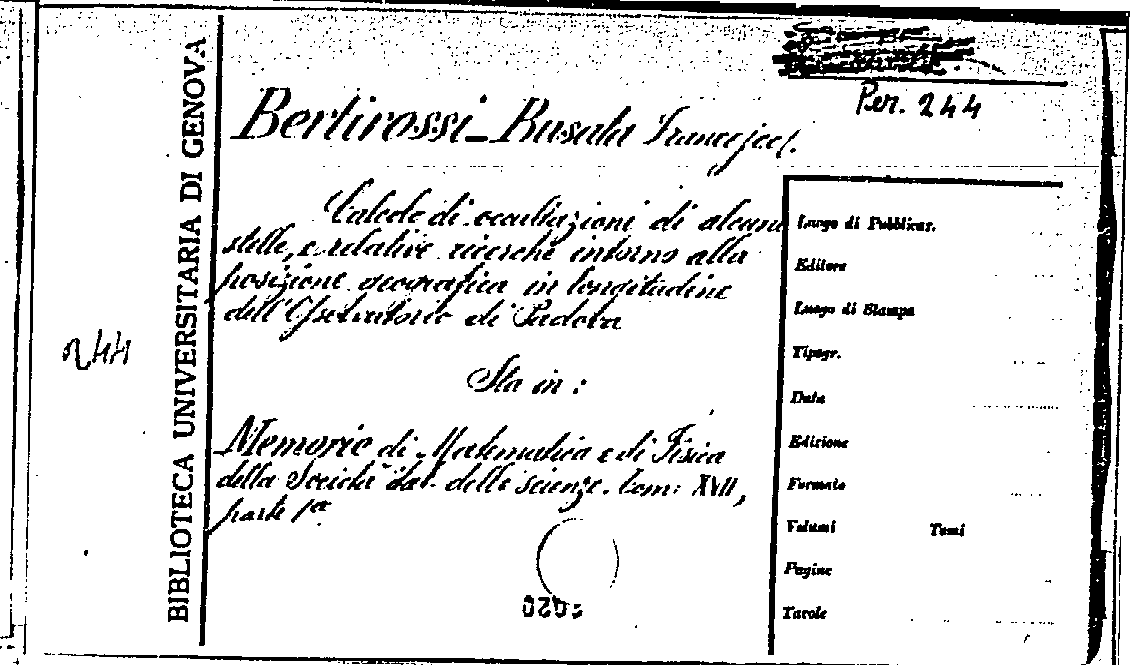 BIBLIOTECA UNIVERSITARIA DI GENOVA
Per. 244
244
Bertirossi-Busata Francesco.
Calcolo di occultazioni di alcune
stelle, e relative ricerche intorno alla
posizione geografica in longitudine
dell'Osservatorio di Padova
Sta in:
Memorie di Matematica e di Fisica
della Società Ital. delle scienze. Tom: XVII,
parte 1ª
Luogo di Pubblicaz.
Editore
Luogo di Stampa
Tipogr.
Data
Edizione
Formato
Volumi Tomi
Pagine
Tavole